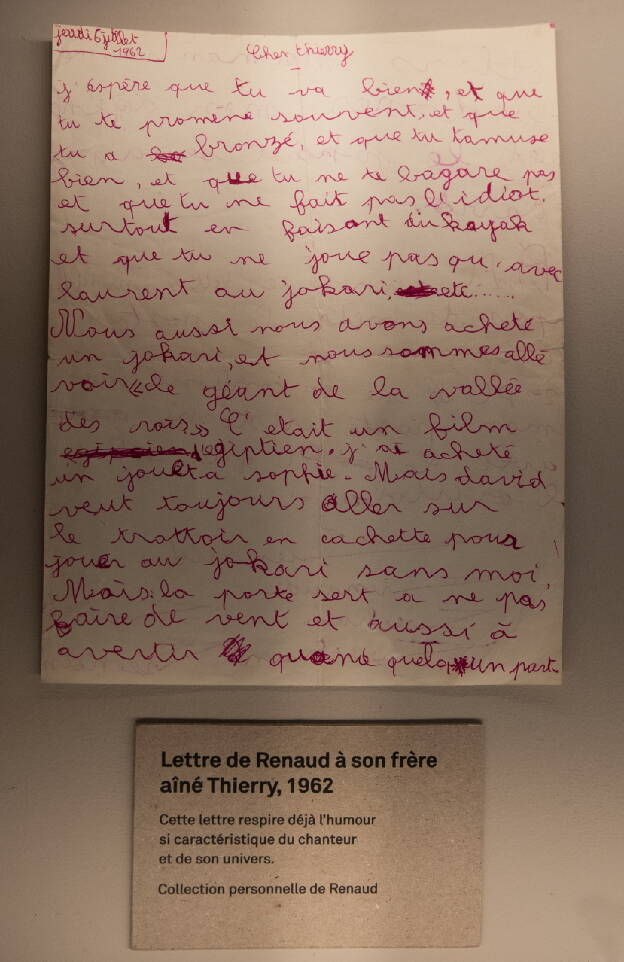 jeudi 6 juillet
1962
Cher thierry
j'éspère que tu va bien, et que
tu te promène souvent, et que
tu a bronzé, et que tu t'amuse
bien, et que tu ne te bagare pas
et que tu ne fait pas l'idiot.
surtout en faisant du kayak
et que tu ne joue pas qu'avec
laurent au jokari, etc......
Nous aussi nous avons acheté
un jokari, et nous sommes allé
voir « le géant de la vallée
des rois » C'etait un film
egiptien. j'ai acheté
un jouet a sophie. Mais david
veut toujours aller sur
le trattoir en cachette pour
jouer au jokari sans moi.
Mais la porte sert a ne pas
faire de vent et aussi à
avertir quand quelqu'un part
Lettre de Renaud à son frère
aîné Thierry, 1962
Cette lettre respire déjà l'humour
si caractéristique du chanteur
et de son univers.
Collection personnelle de Renaud